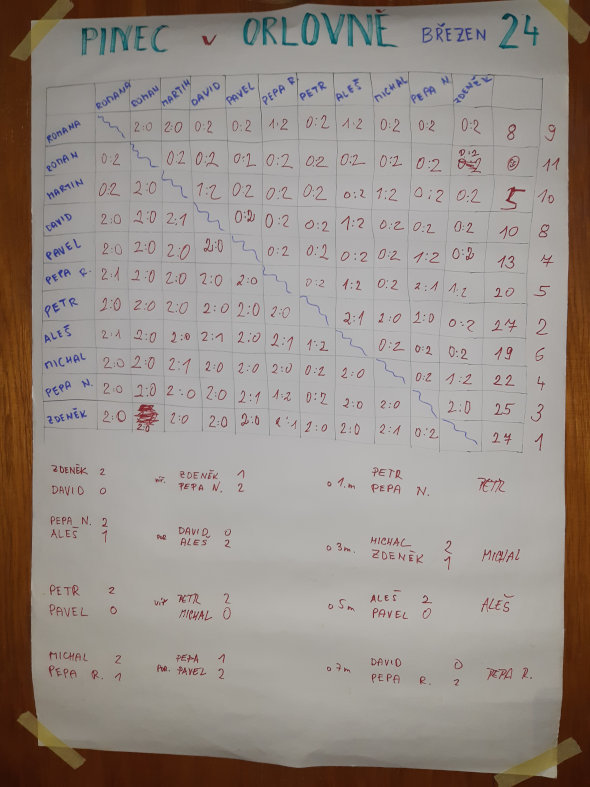 PINEC v ORLOVNĚ BŘEZEN 24
ROMANA ROMAN MARTIN DAVID PAVEL PEPA R. PETR ALEŠ MICHAL PEPA N. ZDENĚK
ROMANA 2:0 2:0 0:2 0:2 1:2 0:2 1:2 0:2 0:2 0:2 8 9
ROMAN 0:2 0:2 0:2 0:2 0:2 0:2 0:2 0:2 0:2 0:2 11
MARTIN 0:2 2:0 1:2 0:2 0:2 0:2 0:2 1:2 0:2 0:2 5 10
DAVID 2:0 2:0 2:1 0:2 0:2 0:2 1:2 0:2 0:2 0:2 10 8
PAVEL 2:0 2:0 2:0 2:0 0:2 0:2 0:2 0:2 1:2 0:2 13 7
PEPA R. 2:1 2:0 2:0 2:0 2:0 0:2 1:2 0:2 2:1 1:2 20 5
PETR 2:0 2:0 2:0 2:0 2:0 2:0 2:1 2:0 2:0 0:2 27 2
ALEŠ 2:1 2:0 2:0 2:1 2:0 2:1 1:2 0:2 0:2 0:2 19 6
MICHAL 2:0 2:0 2:1 2:0 2:0 2:0 0:2 2:0 0:2 1:2 22 4
PEPA N. 2:0 2:0 2:0 2:0 2:1 1:2 0:2 2:0 2:0 2:0 25 3
ZDENĚK 2:0 2:0 2:0 2:0 2:0 2:1 2:0 2:0 2:1 0:2 27 1
ZDENĚK 2 ZDENĚK 1 PETR
DAVID 0 PEPA N. 2 o 1.m PEPA N. PETR
PEPA N. 2 DAVID 0 MICHAL 2
ALEŠ 1 ALEŠ 2 o 3m. ZDENĚK 1 MICHAL
PETR 2 PETR 2 ALEŠ 2
PAVEL 0 MICHAL 0 o 5m PAVEL 0 ALEŠ
MICHAL 2 PEPA 1 DAVID 0
PEPA R. 1 PAVEL 2 o 7m PEPA R. 2 PEPA R.